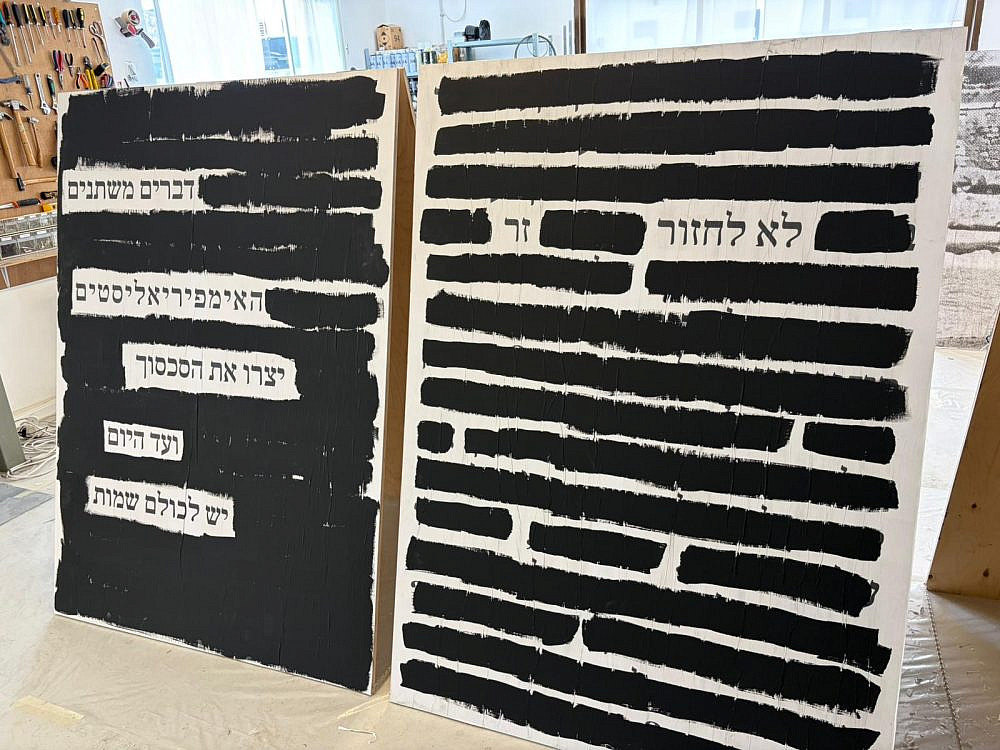 לא לחזור זר
דברים משתנים
האימפיריאליסטים
יצרו את הסכסוך
ועד היום
יש לכולם שמות